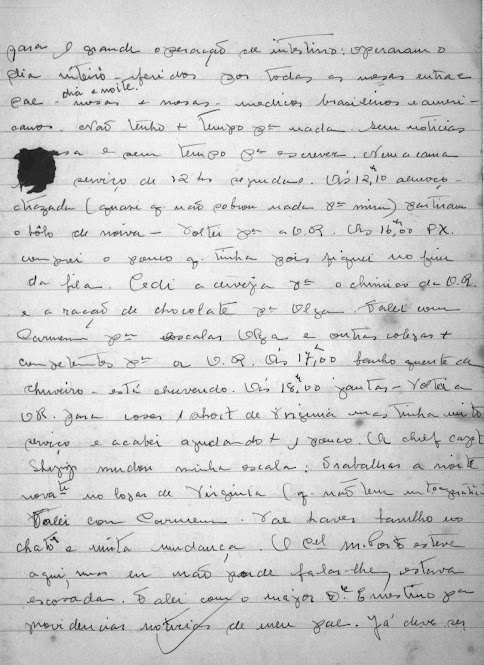 para 1 grande operação de intestino: operaram o
dia inteiro - feridos por todas as mesas entra e
dia e noite.
sae - mesas + mesas - medicos brasileiros e ameri-
canos. Não tenho + tempo pª nada. Sem noticias
e sem tempo pª escrever. Nem a cama
serviço de 12 hs seguidas. Ás 12,10 almoço
atrazada (quasi q. não sobrou nada pª mim) partiram
o bôlo de noiva - Voltei pª a O.R. Ás 16,00 PX.
comprei o pouco q. tinha pois fiquei no fim
da fila. Cedi a cerveja pª o da O.R.
e a ração de chocolate pª Olga. Falei com
Carmem pª escalar Olga e outras colegas +
competentes pª a O.R. Ás 17,00 banho quente de
chuveiro - está chuvendo. Ás 18,00 jantar - Voltei a
OR. para coser 1 short de Virginia mas tinha mto
serviço e acabei ajudando + 1 pouco. A chief
mudou minha escala: Trabalhar a noite
novate no logar de Virginia (q. não tem
Falei com Carmem. Vae haver barulho no
e muita mudança. O Cel M. Porto esteve
aqui, mas eu não pude falar-lhe, estava
escovada. Falei com o major Dr. Ernestino pª
providenciar noticias de meu pae. Já deve ser